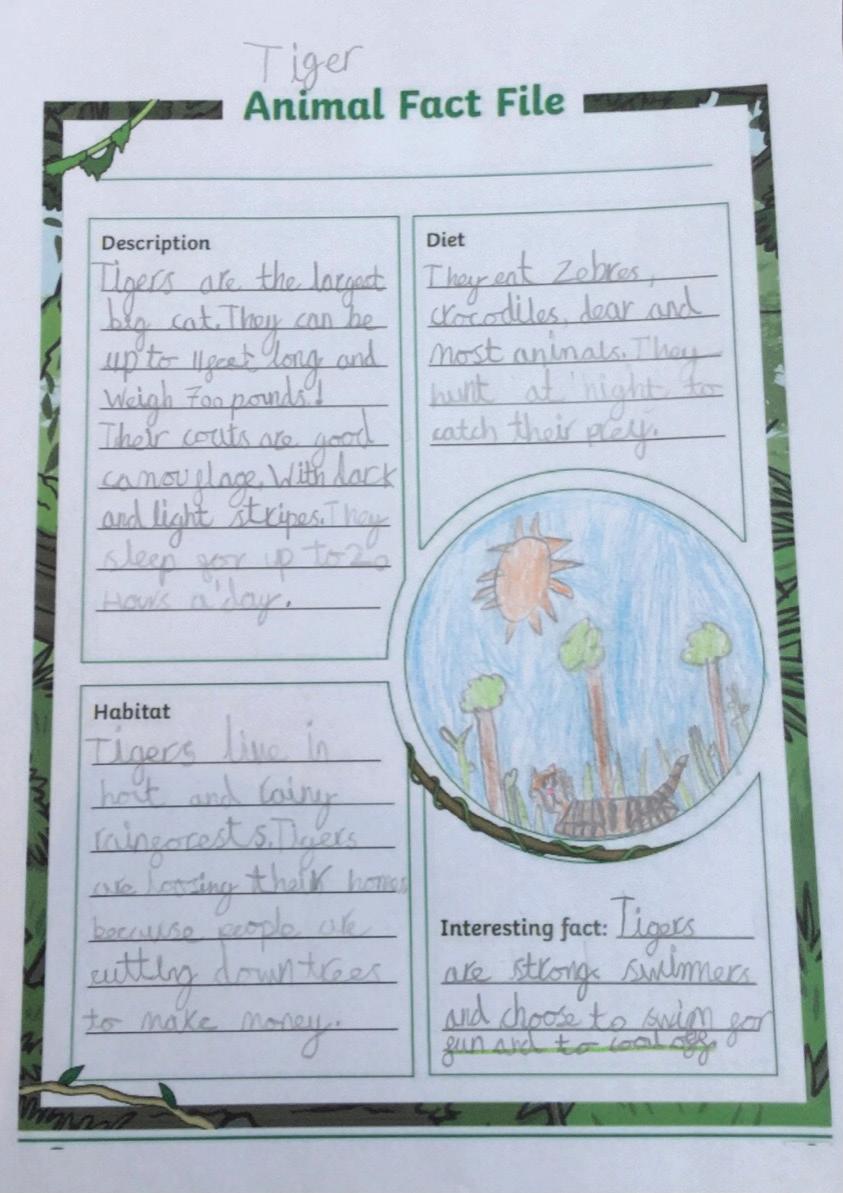 Tiger
Animal Fact File
Description
Tigers are the largest
big cat. They can be
up to 11feet long and
Weigh 700 pounds!
Their couts are good
camouflage. With dark
and light stripes. They
sleep for up to 20
Hours a day.
Diet
They eat Zebres,
crocodiles, dear and
most animals. They
hunt at night to
catch their prey.
Habitat
Tigers live in
hort and rainy
rainforests. Tigers
are loosing their homes
because people are
cutting down trees
to make money.
Interesting fact: Tigers
are strong swimmers
and choose to swim for
fun and to cool off.